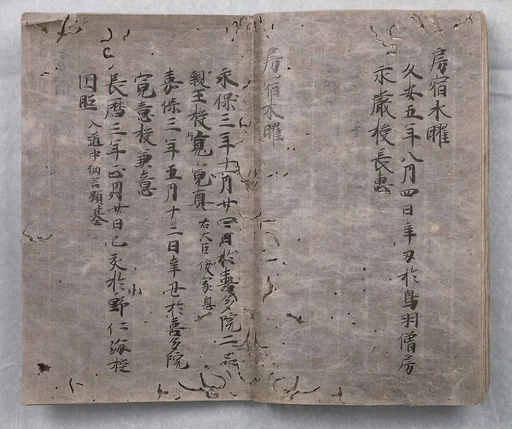 房宿木曜
久安五年八月四日辛丑於鳥羽僧房
永嚴授長惠
房宿木曜
永保三年十月廿四日於喜多院二品
親王授寛寛真右大臣俊家息
嘉保三年五月十二日辛丑於喜多院
寛意授兼意
長暦三年正月廿日乙亥於小野仁海授
因照 入道中納言顕基